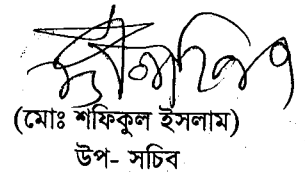 (মোঃ শফিকুল ইসলাম)
উপ- সচিব